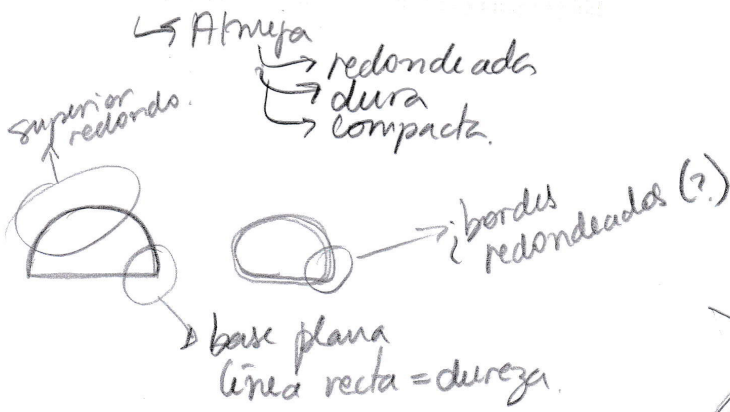 ↳ Almeja
→ redondeada
→ dura
→ compacta.
superior
redondo.
¿bordes
redondeados (?)
base plana
línea recta = dureza.